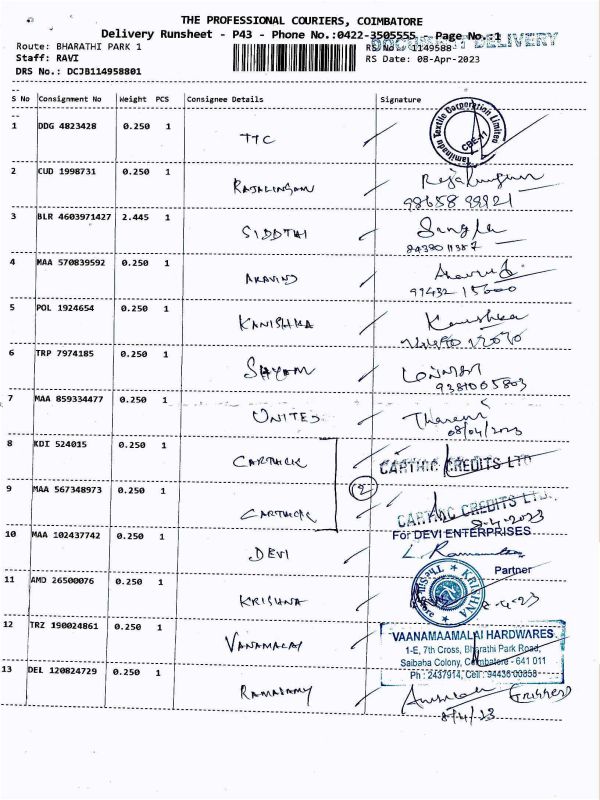 THE PROFESSIONAL COURIERS, COIMBATORE
Delivery Runsheet - P43 - Phone No.:0422-3505555 - Page No.:1
DOCUMENT DELIVERY
Route: BHARATHI PARK 1 RS No.: 1149588
Staff: RAVI RS Date: 08-Apr-2023
DRS No.: DCJB114958801
S No Consignment No Weight PCS Consignee Details Signature
1 DDG 4823428 0.250 1 TTC Tamilnadu Textile Corporation Limited CBE-11
2 CUD 1998731 0.250 1 RAJALINGAM Rajalingam
98658 99921
3 BLR 4603971427 2.445 1 SIDDTHI Sangla
8438011387
4 MAA 570839592 0.250 1 ARAVIND Aravind
99432 15000
5 POL 1924654 0.250 1 KANISHKA Kanishka
6 TRP 7974185 0.250 1 SHYAM
9381005803
7 MAA 859334477 0.250 1 UNITED
08/04/2023
8 KDI 524015 0.250 1 CARTHICK CARTHIC CREDITS LTD
2
9 MAA 567348973 0.250 1 CARTHICK CARTHIC CREDITS LTD.
8-4-2023
10 MAA 102437742 0.250 1 DEVI For DEVI ENTERPRISES
Partner
11 AMD 26500076 0.250 1 KRISHNA KRISHNA
8-4-23
12 TRZ 190024861 0.250 1 VANAMALAI VAANAMAAMALAI HARDWARES
1-E, 7th Cross, Bharathi Park Road,
Saibaba Colony, Coimbatore - 641 011
Ph : 2437914, Cell : 94436 00358
13 DEL 120824729 0.250 1 RAMASAMY
8/4/23